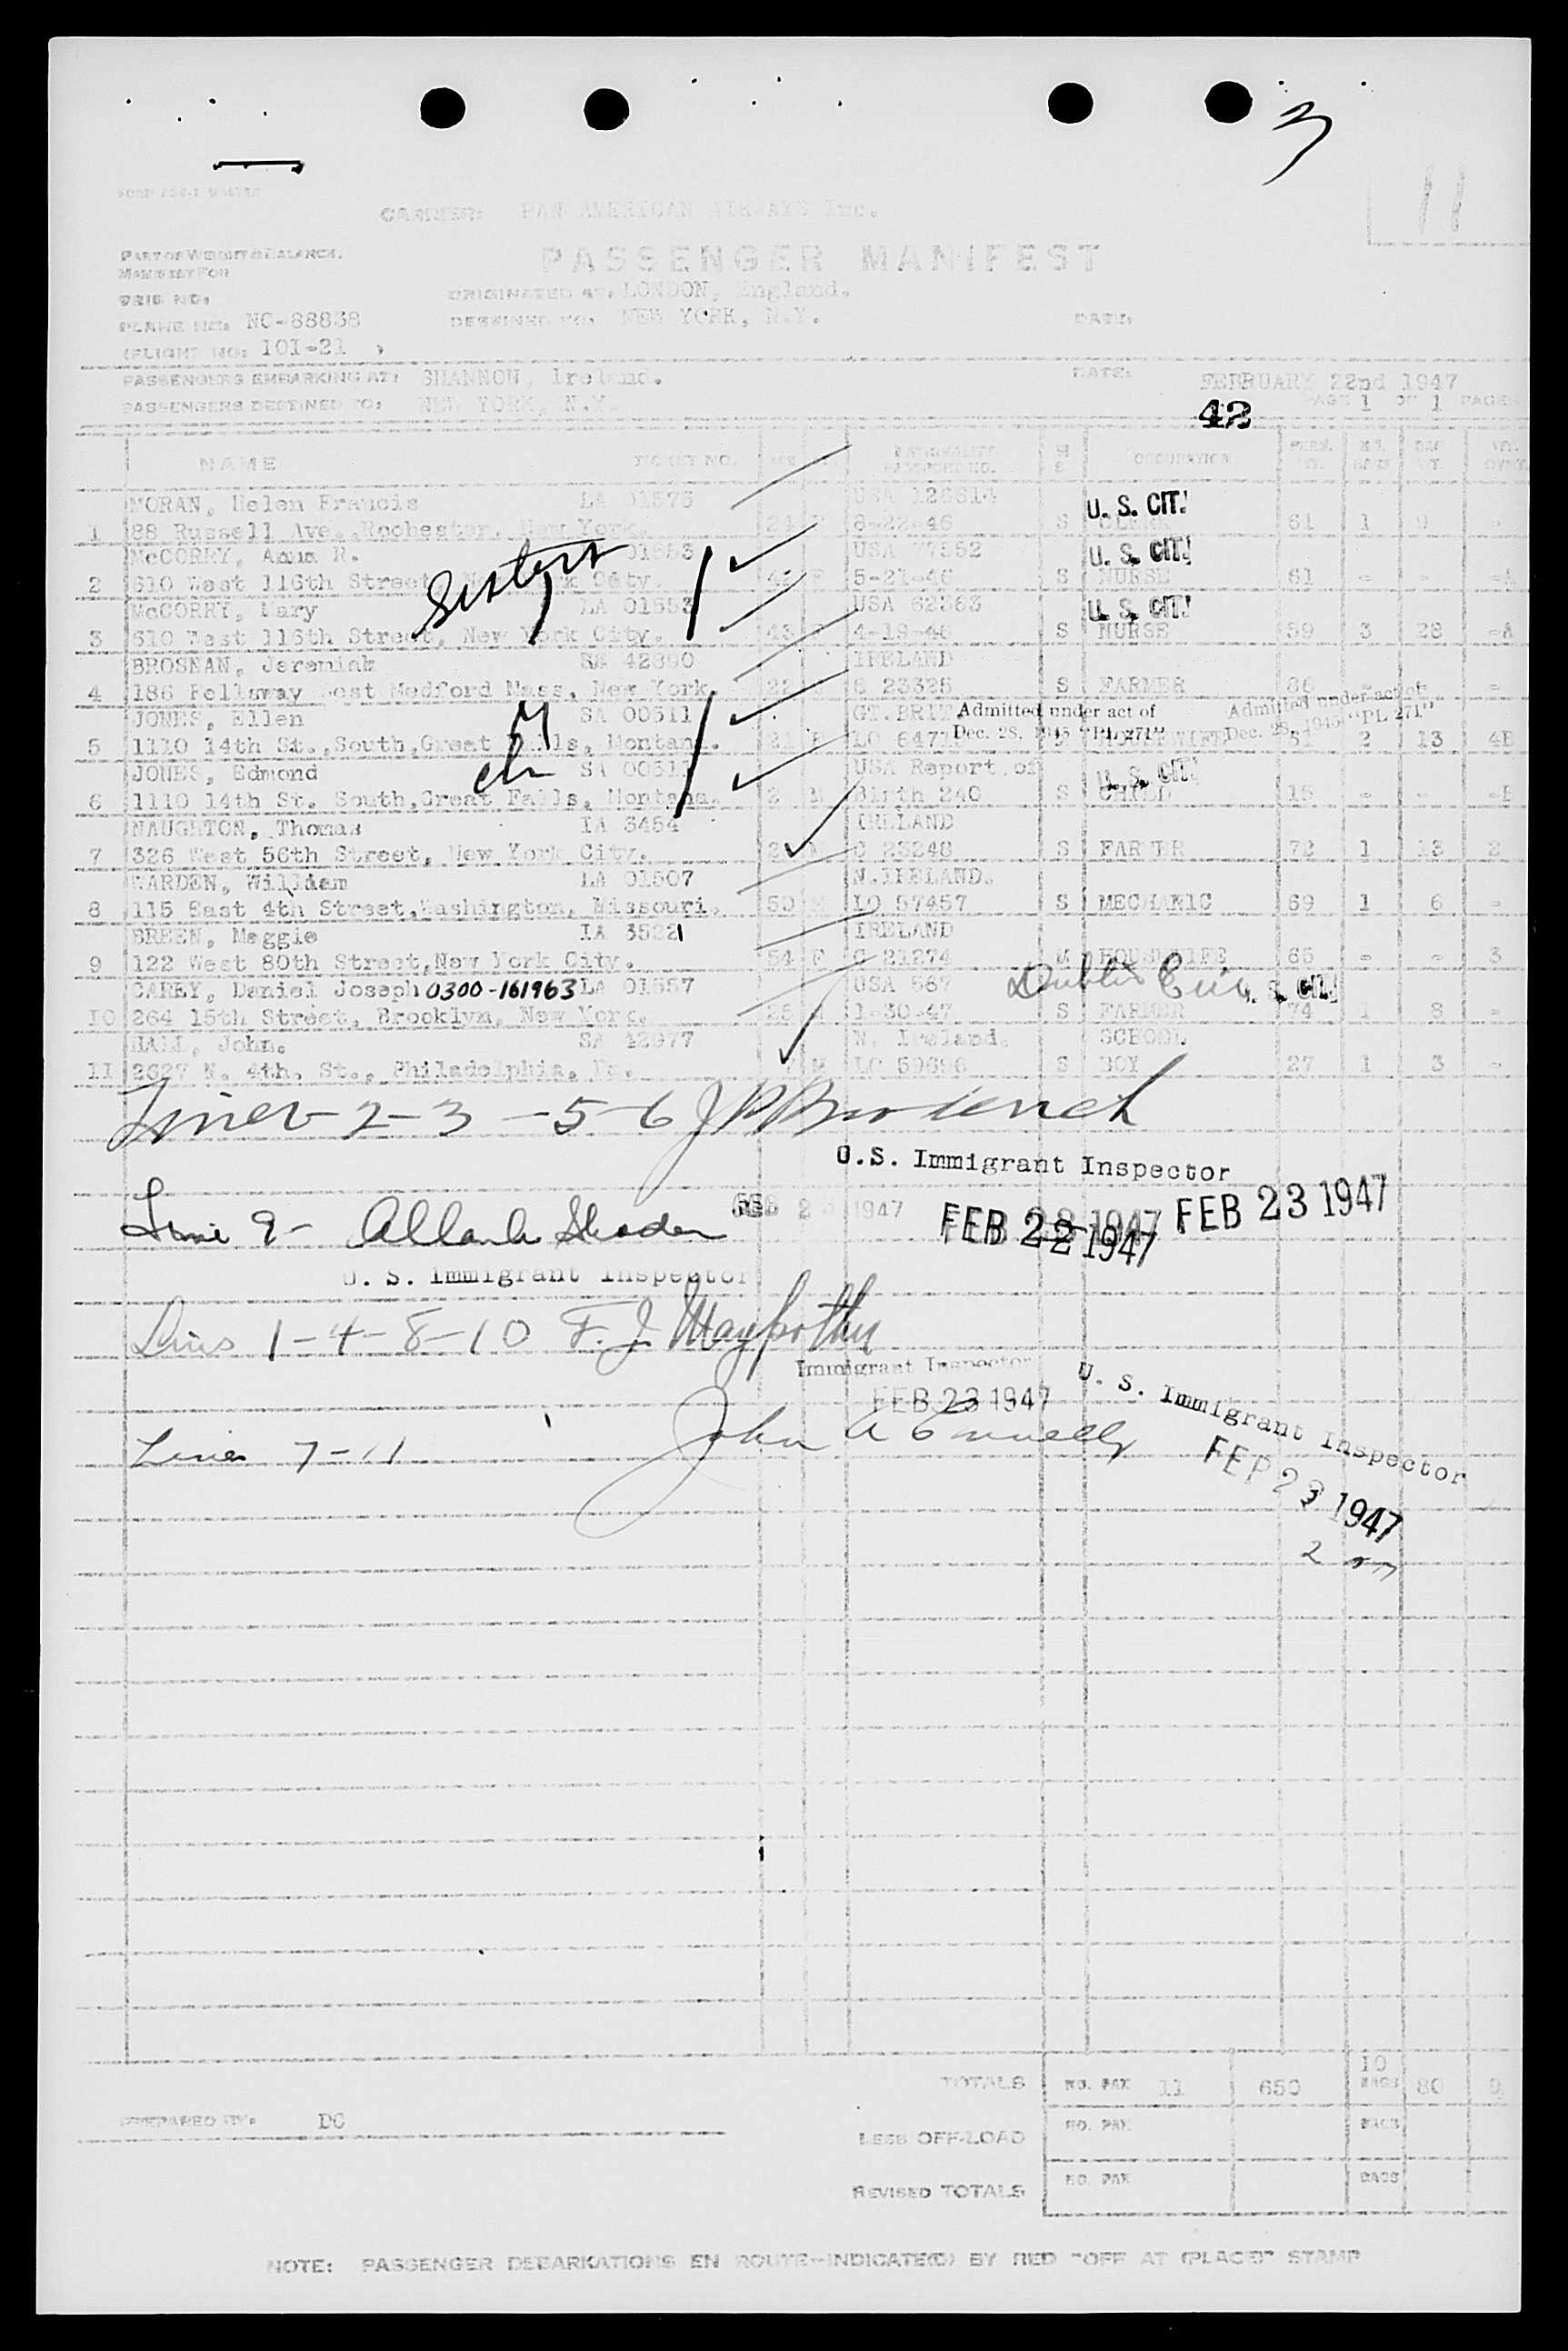 3
11
CARRIER: PAN AMERICAN AIRWAYS Inc.
PART OF WEIGHT & BALANCE.
MANIFEST FOR
PASSENGER MANIFEST
TRIP NO:
ORIGINATED AT: LONDON, England.
PLANE NO: NC-88838
DESTINED TO: NEW YORK, N.Y.
DATE:
(FLIGHT NO: 101-21 )
PASSENGERS EMBARKING AT: SHANNON, Ireland.
DATE: FEBRUARY 22nd 1947
PASSENGERS DESTINED TO: NEW YORK, N.Y.
PAGE 1 OF 1 PAGES
42
NAME TICKET NO. AGE OCCUPATION
MORAN, Helen Francis LA 01576 USA 126614 U. S. CIT.
1 88 Russell Ave., Rochester, New York. 24 F 8-22-46 S CLERK 61 1 9 -
McCORRY, Anna R. 01553 USA 77552 U. S. CIT.
Sisters
2 610 West 116th Street, New York City. F 5-21-46 S NURSE 61 - - -A
McCORRY, Mary LA 01553 USA 62363 U. S. CIT.
3 610 West 116th Street, New York City. 43 F 4-19-46 S NURSE 59 3 28 -A
BROSNAN, Jeremiah SA 42890 IRELAND
4 186 Fellsway West Medford Mass, New York. 22 C 23325 S FARMER 86 - - -
JONES, Ellen SA 00511 GT. BRIT Admitted under act of Dec. 28, 1945 "PL 271" Admitted under act of Dec. 28, 1945 "PL 271"
M
5 1110 14th St., South, Great Falls, Montana. 21 F LO 6471 HOUSEWIFE 51 2 13 4B
JONES, Edmond SA 00511 USA Report of U. S. CIT.
ch
6 1110 14th St. South, Great Falls, Montana. 2 M Birth 240 S CHILD 15 - - -B
NAUGHTON, Thomas IA 3454 IRELAND
7 326 West 56th Street, New York City. C 23248 S FARMER 72 1 13 2
WARDEN, William LA 01507 N. IRELAND.
8 115 East 4th Street, Washington, Missouri. 50 M LO 57457 S MECHANIC 69 1 6 -
BREEN, Meggie IA 35221 IRELAND
9 122 West 80th Street, New York City. 54 F C 21274 M HOUSEWIFE 65 - - 3
CAREY, Daniel Joseph 0300-161963 LA 01557 USA 567 Dublin Eire U. S. CIT.
10 264 15th Street, Brooklyn, New York. 25 M 1-30-47 S FARMER 74 1 8 -
HALL, John. SA 42977 N. Ireland. SCHOOL
11 2627 N. 4th. St., Philadelphia, Pa. M LO 59696 S BOY 27 1 3 -
Lines 2-3-5-6
U.S. Immigrant Inspector
FEB 2 1947 FEB 22 1947 FEB 23 1947
FEB 22 1947
Line 9-
U. S. Immigrant Inspector
Lines 1-4-8-10 F. J.
Immigrant Inspector
FEB 23 1947
U. S. Immigrant Inspector
Lines 7-11 John A Connelly
FEB 23 1947
2
TOTALS NO. PAX 11 650 10 BAGS 80 9
PREPARED BY: DC
LESS OFF-LOAD NO. PAX BAGS
REVISED TOTALS NO. PAX BAGS
NOTE: PASSENGER DEBARKATIONS EN ROUTE-INDICATE(D) BY RED "OFF AT (PLACE)" STAMP